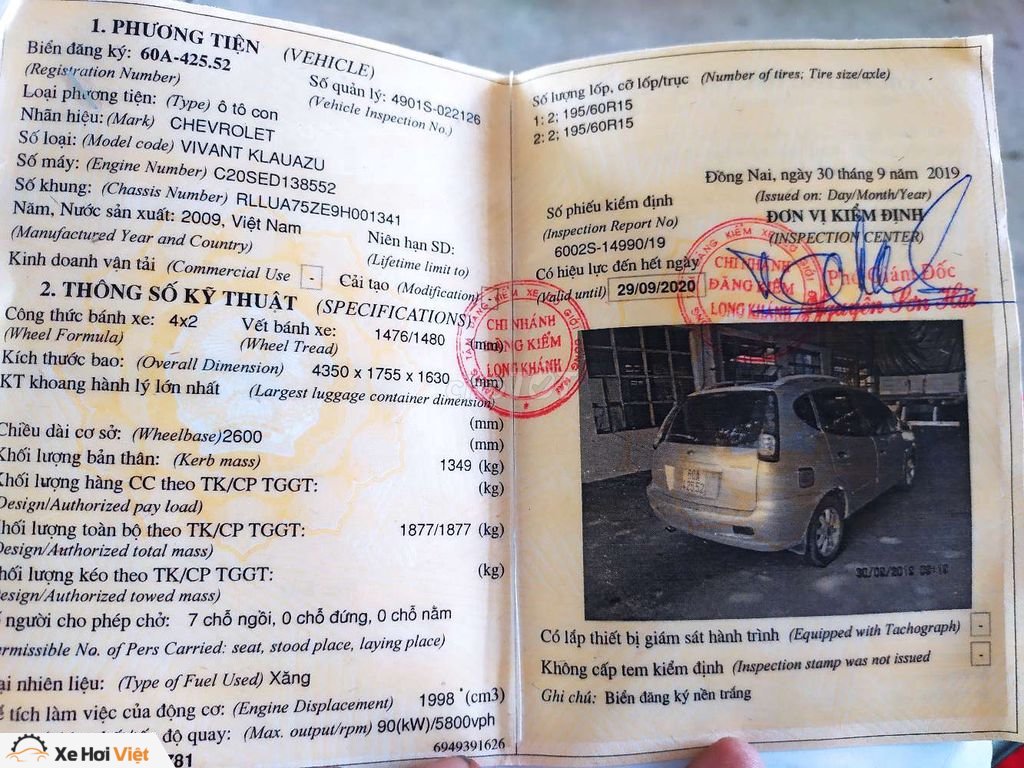 1. PHƯƠNG TIỆN (VEHICLE)
Biển đăng ký: 60A-425.52
(Registration Number)
Số quản lý: 4901S-022126
(Vehicle Inspection No.)
Loại phương tiện: (Type) ô tô con
Nhãn hiệu: (Mark) CHEVROLET
Số loại: (Model code) VIVANT KLAUAZU
Số máy: (Engine Number) C20SED138552
Số khung: (Chassis Number) RLLUA75ZE9H001341
Năm, Nước sản xuất: 2009, Việt Nam
(Manufactured Year and Country)
Niên hạn SD:
(Lifetime limit to)
Kinh doanh vận tải (Commercial Use - Cải tạo (Modification)
2. THÔNG SỐ KỸ THUẬT (SPECIFICATIONS)
Công thức bánh xe: 4x2
(Wheel Formula)
Vết bánh xe: 1476/1480 (mm)
(Wheel Tread)
Kích thước bao: (Overall Dimension) 4350 x 1755 x 1630 (mm)
KT khoang hành lý lớn nhất (Largest luggage container dimension)
(mm)
Chiều dài cơ sở: (Wheelbase) 2600 (mm)
Khối lượng bản thân: (Kerb mass) 1349 (kg)
Khối lượng hàng CC theo TK/CP TGGT: (kg)
Design/Authorized pay load)
hối lượng toàn bộ theo TK/CP TGGT: 1877/1877 (kg)
Design/Authorized total mass)
hối lượng kéo theo TK/CP TGGT: (kg)
esign/Authorized towed mass)
người cho phép chở: 7 chỗ ngồi, 0 chỗ đứng, 0 chỗ nằm
ermissible No. of Pers Carried: seat, stood place, laying place)
ại nhiên liệu: (Type of Fuel Used) Xăng
tích làm việc của động cơ: (Engine Displacement) 1998 (cm3)
độ quay: (Max. output/rpm) 90(kW)/5800vph
6949391626
781
Xe Hơi Việt
Số lượng lốp, cỡ lốp/trục (Number of tires; Tire size/axle)
1: 2; 195/60R15
2: 2; 195/60R15
Đồng Nai, ngày 30 tháng 9 năm 2019
(Issued on: Day/Month/Year)
Số phiếu kiểm định
(Inspection Report No)
6002S-14990/19
ĐƠN VỊ KIỂM ĐỊNH
(INSPECTION CENTER)
Có hiệu lực đến hết ngày
(Valid until) 29/09/2020
CHI NHÁNH
ĐĂNG KIỂM
LONG KHÁNH
Phó Giám Đốc
CHI NHÁNH
ĐĂNG KIỂM
LONG KHÁNH
60A
425.52
30/09/2019
Có lắp thiết bị giám sát hành trình (Equipped with Tachograph) -
Không cấp tem kiểm định (Inspection stamp was not issued -
Ghi chú: Biển đăng ký nền trắng